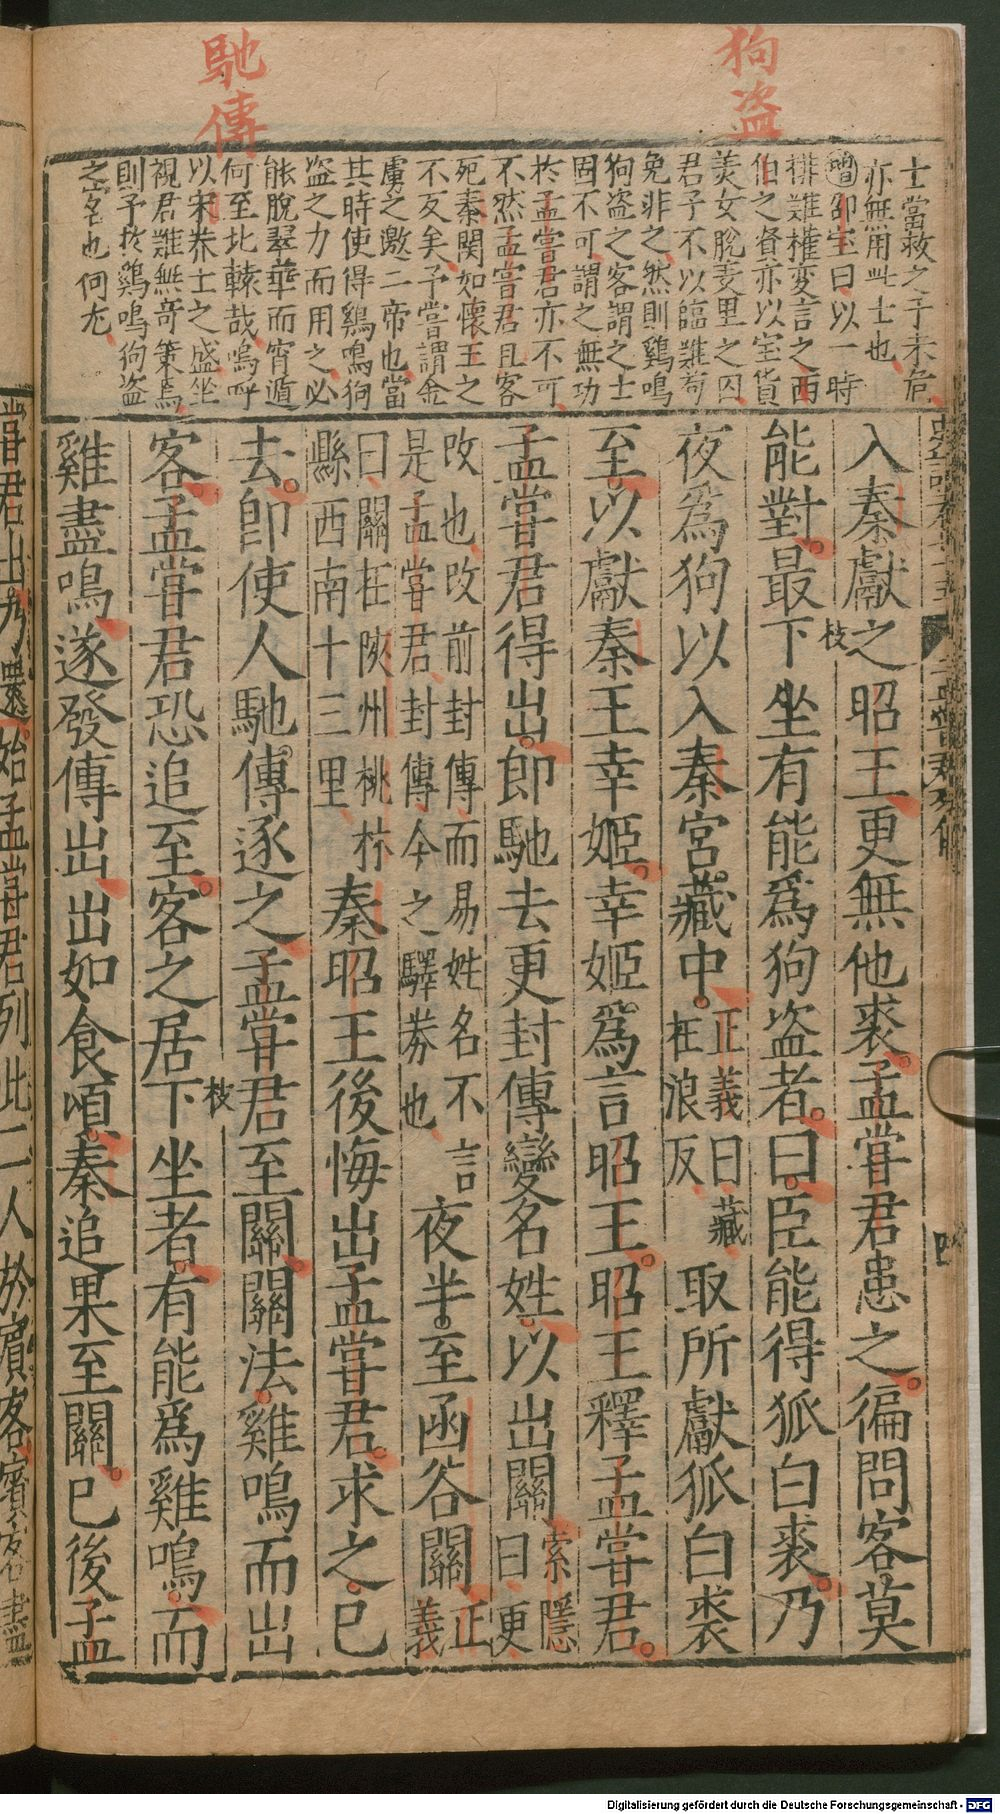 狗盗
馳傳
士當救之于未危
亦無用此士也
增邵宝曰以一時
排難權変言之西
伯之資亦以宝貨
美女脫羑里之囚
君子不以臨難苟
免非之然則鷄鳴
狗盗之客謂之士
固不可謂之無功
於孟嘗君亦不可
不然孟嘗君且客
死秦関如懐王之
不反矣予嘗謂金
虜之邀二帝也當
其時使得鷄鳴狗
盗之力而用之必
能脫翠華而宵遁
何至北轅哉嗚呼
以宋养士之盛坐
視君難無竒策焉
則予於鷄鳴狗盗
之客也何尤
入秦獻之昭王更無他裘孟嘗君患之徧問客莫
能對最下坐有能爲狗盗者曰臣能得狐白裘乃
枝
夜爲狗以入秦宮藏中
正義曰藏
在浪反
取所獻狐白裘
至以獻秦王幸姬幸姬爲言昭王昭王釋孟嘗君
孟嘗君得出即馳去更封傳變名姓以出關
索隱
曰更
改也改前封傳而易姓名不言
是孟嘗君封傳今之驛券也
夜半至函谷關
正
義
曰關在陝州桃林
縣西南十三里
秦昭王後悔出孟嘗君求之已
去即使人馳傳逐之孟嘗君至關關法雞鳴而出
客孟嘗君恐追至客之居下坐者有能爲雞鳴而
枝
雞盡鳴遂發傳出出如食頃秦追果至關已後孟
嘗君出乃還始孟嘗君列此二人於賓客賓客盡
四
Digitalisierung gefördert durch die Deutsche Forschungsgemeinschaft - DFG